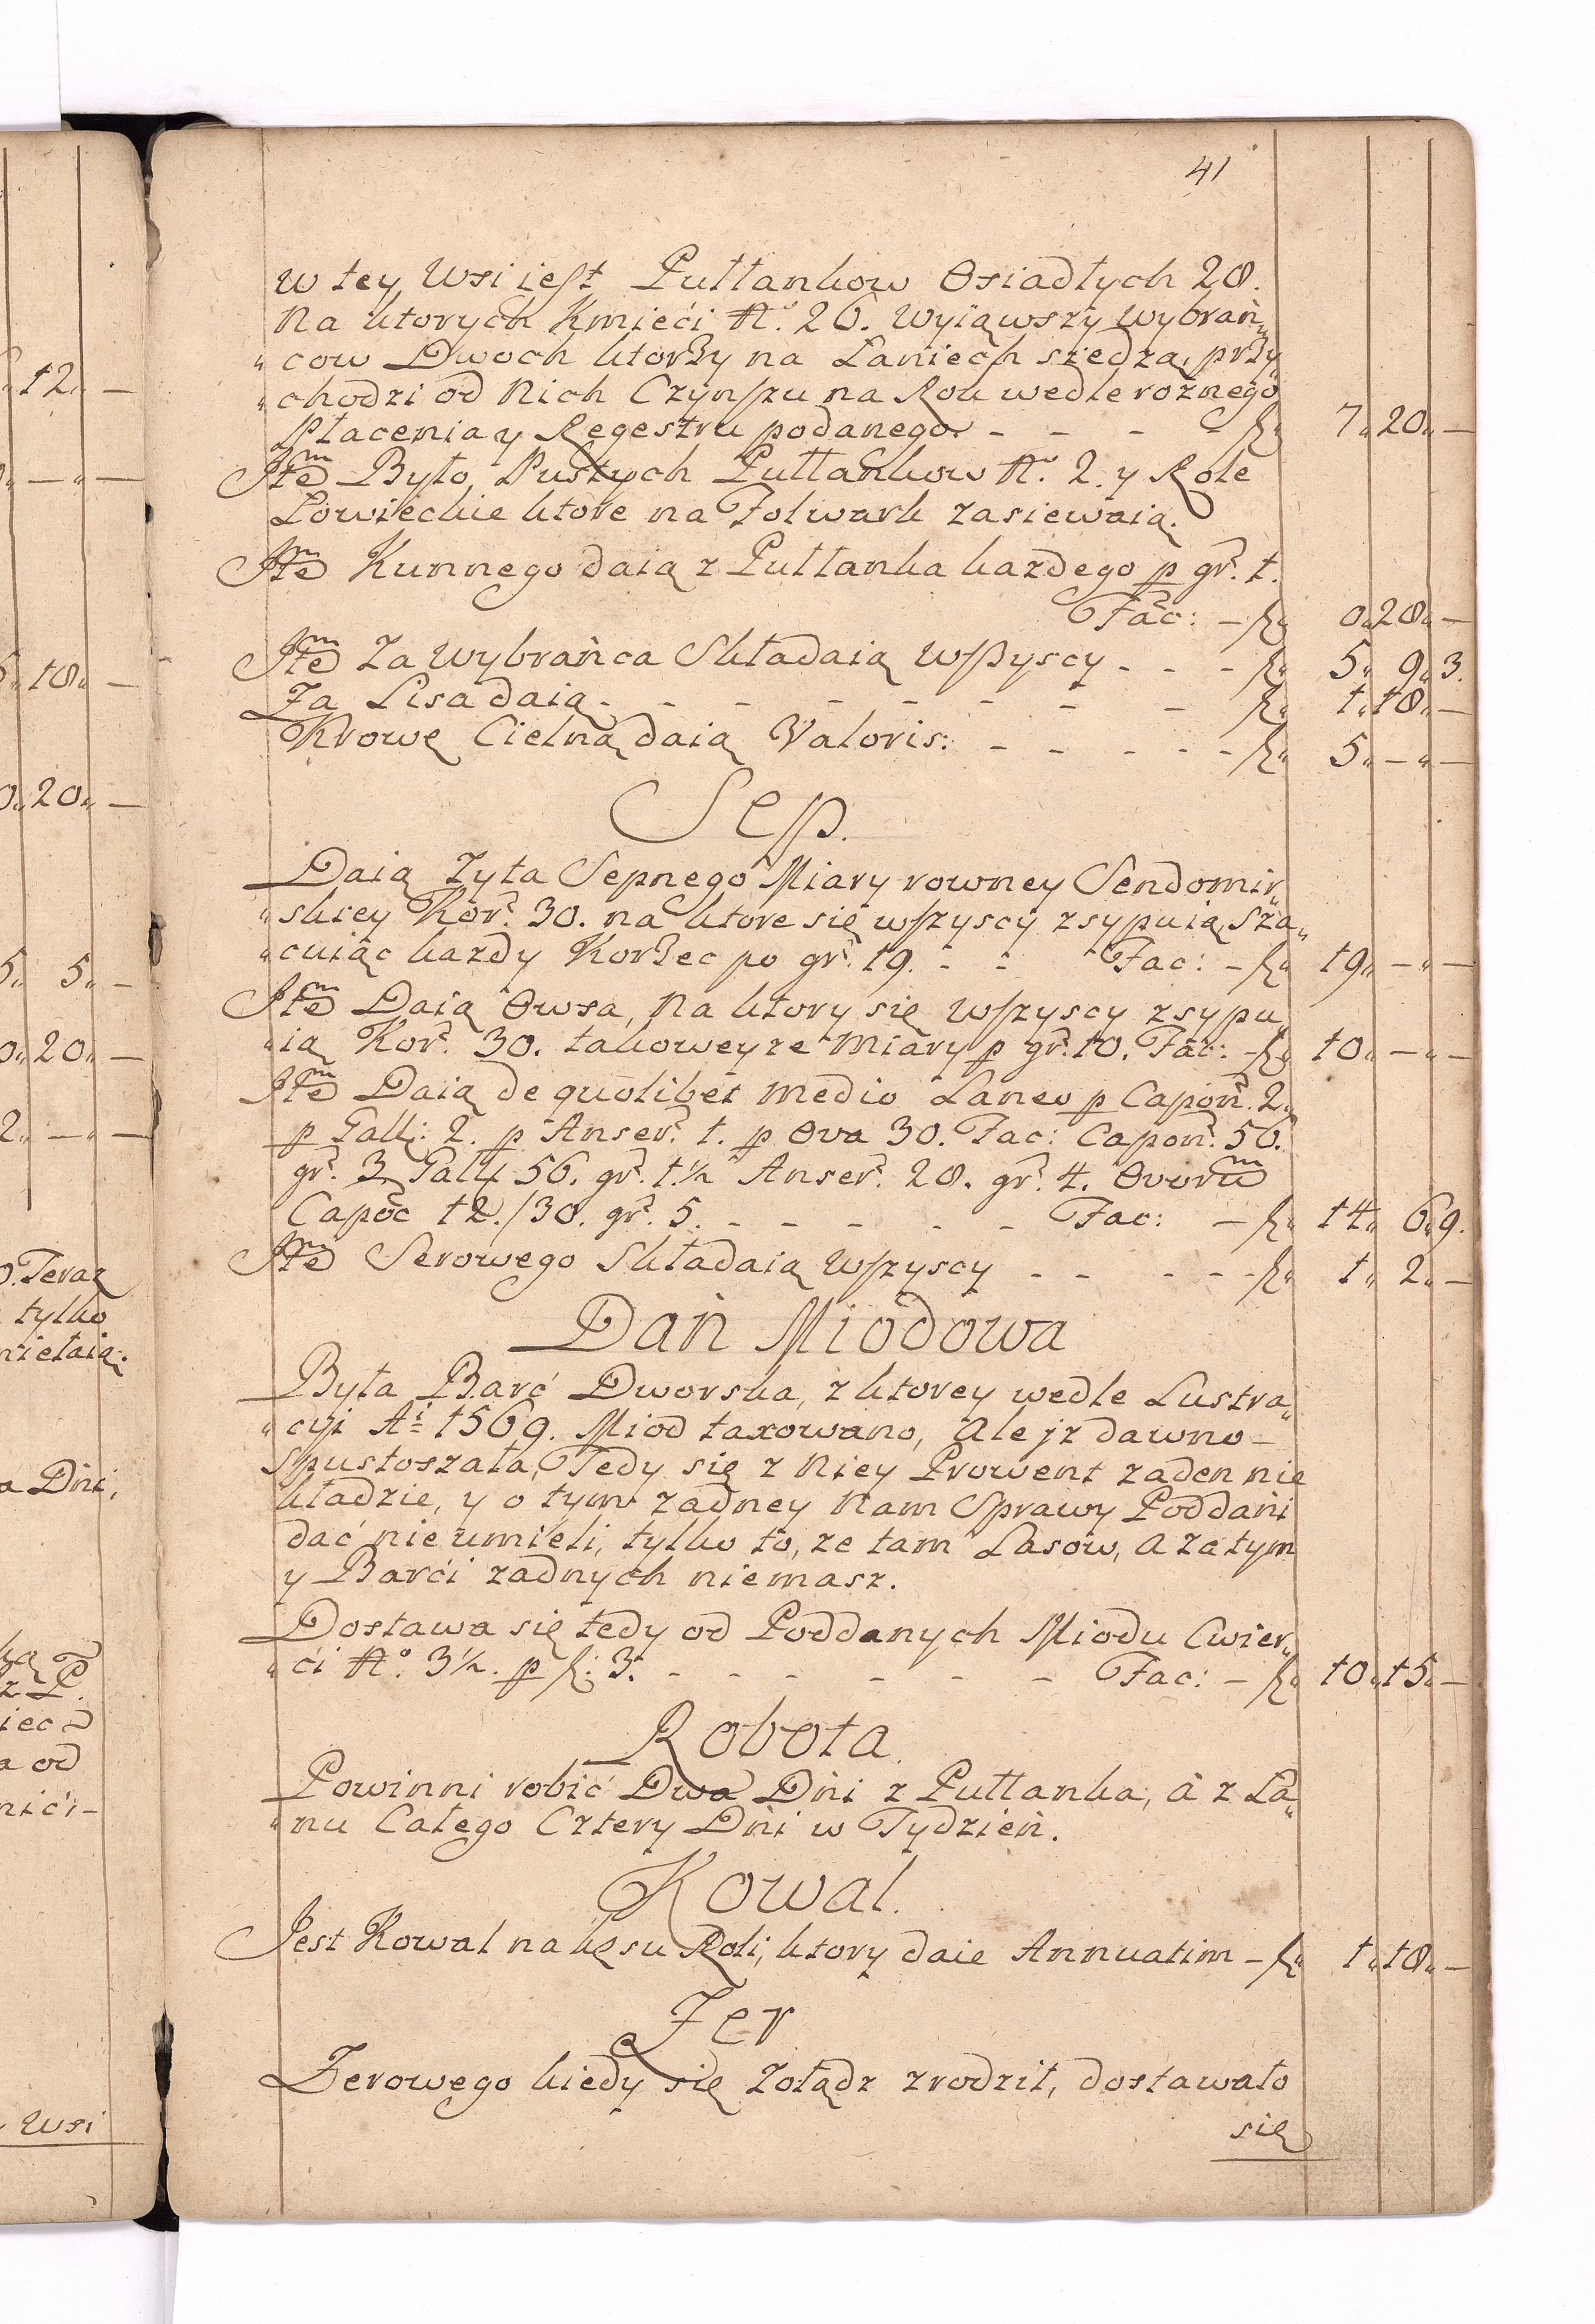 41
w tey Wsi iest Pułłankow Osiadłych 28.
Na ktorych Kmieći No. 26. Wyiąwszy Wybrań„
„cow Dwoch ktorzy na Łaniech siedzą, przy„
„chodzi od Nich Czynszu na Rok wedle rożnego
Płacenia y Regestru podanego. - - - - fl„ 7„ 20„ —
Itẽm Było Pustych Pułłankow No. 2. y Role
Łowieckie ktore na Folwark zasiewaią.
Itẽm Kunnego daią z Pułłanka każdego p gr. 1.
Fac: - fl„ 0„ 28„ —
Itẽm Za Wybrańca Składaią Wszyscy - - - fl„ 5„ 9„ 3.
Za Lisa daią - - - - - - - - fl„ 1„ 18„ —
Krowę Cielną daią Valoris: - - - - - fl„ 5„ — „ —
Sep.
Daią Zyta Sepnego Miary rowney Sendomir„
„skiey Kor. 30. na ktore się wszyscy zsypuią, Sza„
„cuiąc kazdy Korzec po gr. 19. - - Fac: - fl„ 19„ — „ —
Itẽm Daią Owsa, Na ktory się Wszyscy zsypu„
„ią Kor. 30. takoweyze Miary p gr. 10. Fac: - fl„ 10„ — „ —
Itẽm Daią de quolibet medio Laneo p Capon. 2.
p Gall: 2. p Anser. 1. p Ova 30. Fac: Capon. 56.
gr. 3. Gall 56. gr. 1 1/2 Anser. 28. gr. 4. Ovorũm
Capoc 12./30. gr. 5. - - - - - Fac: - fl„ 14„ 6„ 9.
Itẽm Serowego Składaią Wszyscy - - - - - fl„ 1„ 2„ —
Dań Miodowa
Była Barć Dworska, z ktorey wedle Lustra„
„cyi Ai 1569. Miod taxowano, Ale jż dawno
Spustoszała, Tedy się z Niey Prowent zaden nie
kładzie, y o tym zadney Nam Sprawy Poddani
dać nie umieli, tylko to, ze tam Lasow, a zatym
y Barći zadnych niemasz.
Dostawa się tedy od Poddanych Miodu Cwier„
„ći No. 3 1/2. p fl: 3. - - - - - - Fac: - fl„ 10„ 15„ —
Robota.
Powinni robić Dwa Dńi z Pułłanka, à z Ła„
„nu Całego Cztery Dńi w Tydzień.
Kowal.
Jest Kowal na kęsu Roli, ktory daie Annuatim - fl„ 1„ 18„ —
Zer
Zerowego kiedy się Zołądz zrodził, dostawało
się